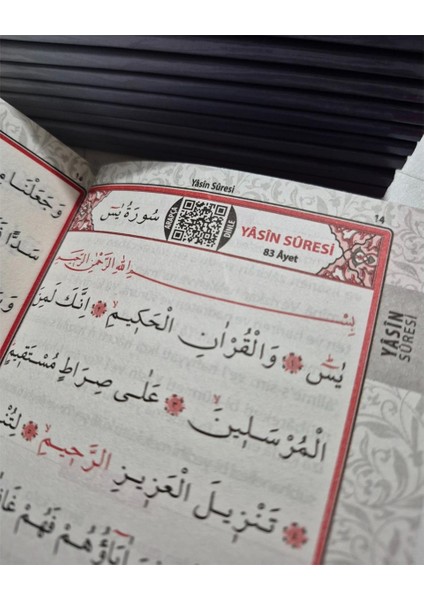 Yâsîn Sûresi
14
سُورَةُ يٰسٓ
ARAPÇA
DİNLE
YÂSÎN SÛRESİ
83 Âyet
بِسْمِ اللّٰهِ الرَّحْمٰنِ الرَّحِيمِ
يٰسٓ ۞ وَالْقُرْاٰنِ الْحَكِيمِۙ ۞ اِنَّكَ لَمِنَ
الْمُرْسَلِينَۙ ۞ عَلٰى صِرَاطٍ مُسْتَقِيمٍ
۞ تَنْزِيلَ الْعَزِيزِ الرَّحِيمِۙ ۞
اٰبَٓاؤُ۬هُمْ فَهُمْ
وَجَعَلْنَا
سَدًّا
YÂSÎN
SÛRESİ